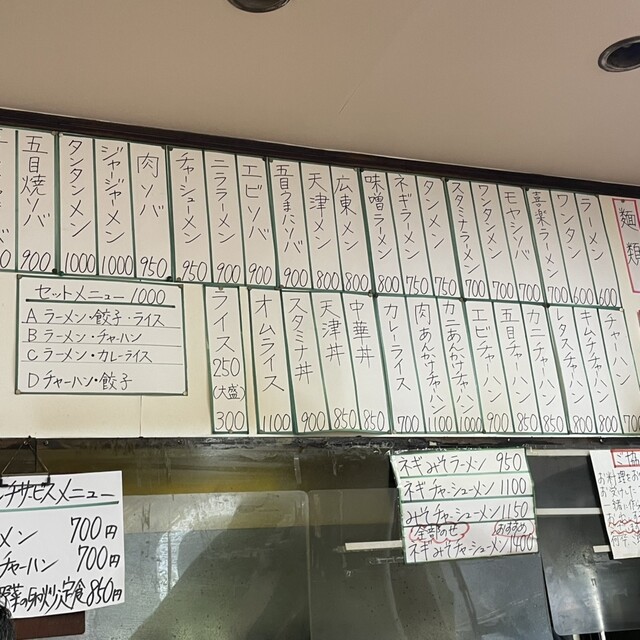 麺類
ラーメン 600
ワンタン 600
喜楽ラーメン 700
モヤシソバ 700
ワンタメン 700
スタミナラーメン 700
タンメン 750
ネギラーメン 750
味噌ラーメン 800
広東メン 800
天津メン 800
五目うまにソバ 900
エビソバ 900
ニラソラーメン 900
チャーシューメン 950
肉ソバ 950
ジャージャーメン 1000
タンタンメン 1000
五目焼ソバ 900
チャーハン 700
キムチチャーハン 800
レタスチャーハン 800
カニチャーハン 850
五目チャーハン 850
エビチャーハン 900
カニあんかけチャーハン 1000
肉あんかけチャーハン 1100
カレーライス 700
中華丼 850
天津丼 850
スタミナ丼 900
オムライス 1100
ライス 250
(大盛) 300
セットメニュー 1000
A ラーメン・餃子・ライス
B ラーメン・チャーハン
C ラーメン・カレーライス
D チャーハン・餃子
チサービスメニュー
メン 700円
チャーハン 700円
野菜の卵炒り定食 850円
ネギみそラーメン 950
ネギチャーシューメン 1100
みそチャーシューメン 1150
全部のせ おすすめ
ネギみそチャーシューメン 1400